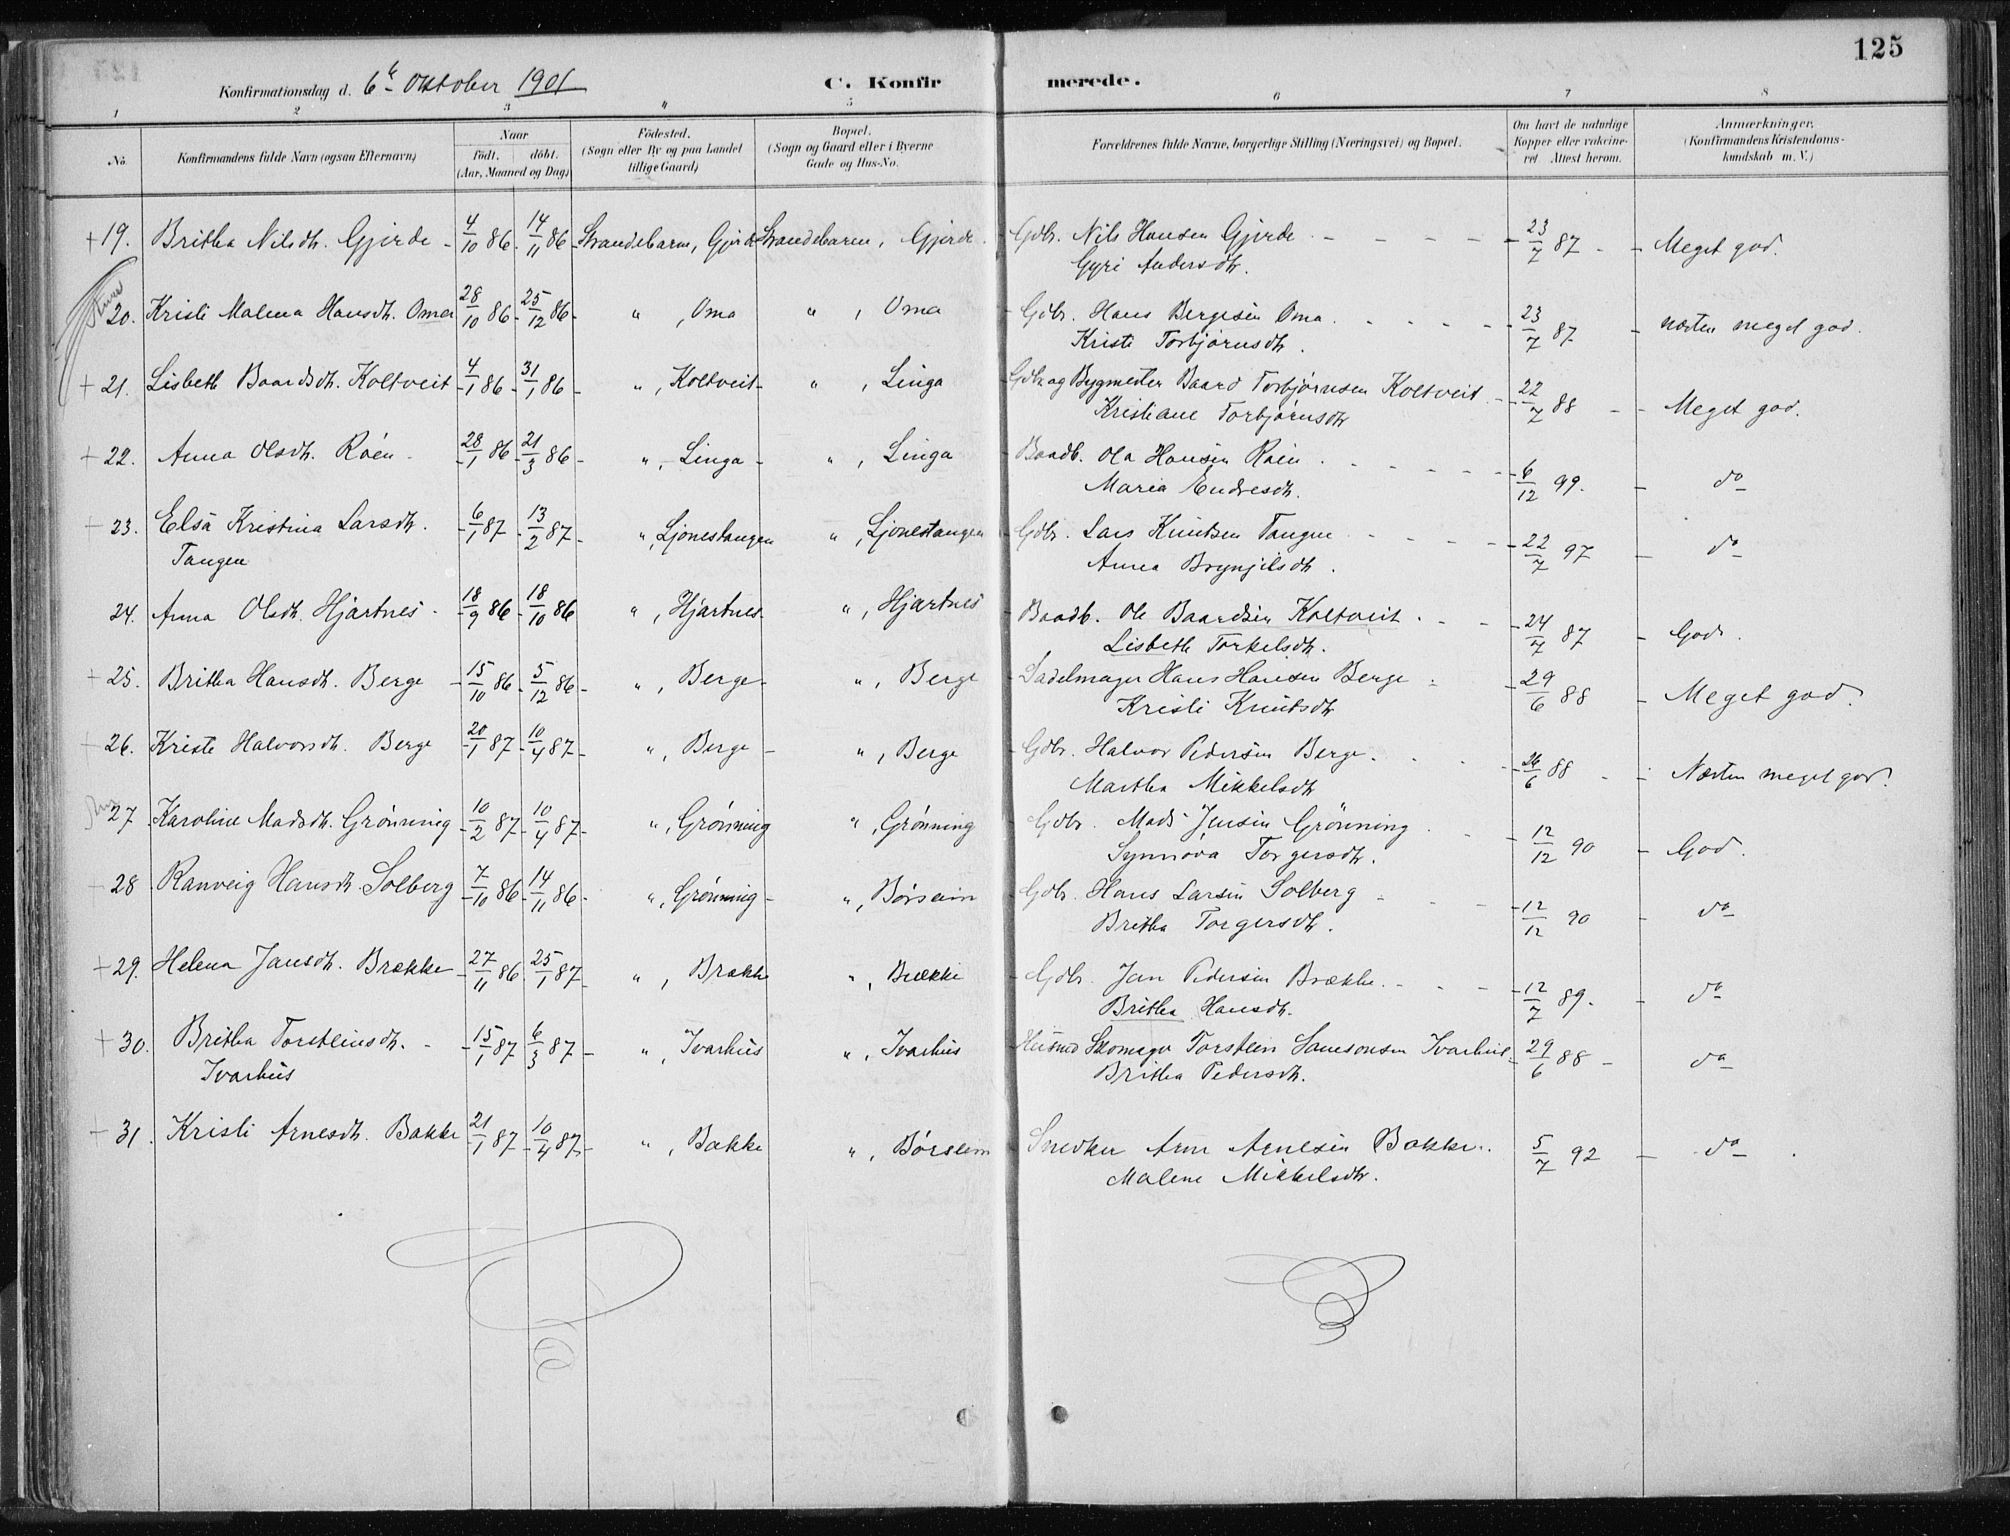 125
Konfirmationsdag d. 6te Oktober 1901 C. Konfirmerede.
1 2 3 4 5 6 7 8
No. Konfirmandens fulde Navn (ogsaa Efternavn) Naar født. døbt. (Aar, Maaned og Dag) Fødested. (Sogn eller By og paa Landet tillige Gaard) Bopæl. (Sogn og Gaard eller i Byerne Gade og Hus-No. Forældrenes fulde Navne, borgerlige Stilling (Næringsvei) og Bopæl. Om havt de naturlige Kopper eller vakcineret. Attest herom. Anmærkninger. (Konfirmandens Kristendomskundskab m. V.)
+ 19. Britha Nilsdtr. Gjerde - 4/10 86. 14/11 86 Strandebarm, Gjerde Strandebarm, Gjerde. Gdbr. Nils Hansen Gjerde - 23/7 87 - Meget god.
Gyri Andersdtr.
20. Kristi Malena Hansdtr. Oma 28/10 86 25/12 86 " , Oma " , Oma Gdbr. Hans Bergesen Oma. 23/7 87 - næsten meget god.
Kristi Torbjørnsdtr.
+ 21. Lisbeth Baardsdtr. Koltveit 4/1 86 31/1 86 " , Koltveit " , Linga Gdbr og Bygmester Baard Torbjørnsen Koltveit 22/7 88 - Meget god.
Kristiane Torbjørnsdtr
+ 22. Anna Olsdtr. Røen 28/1 86 21/3 86 " , Linga " , Linga Baadb. Ola Hansen Røen. 6/12 99. - do
Maria Endresdtr.
23. Elsa Kristina Larsdtr. 6/1 87 13/2 87 " , Ljonestangen " , Ljonestangen Gdbr. Lars Knutsen Tangen 22/7 97 - do
Tangen Anna Brynjelsdtr.
24. Anna Olsdtr. Hjartnes 18/9 86 18/10 86 " , Hjartnes " , Hjartnes Baadb. Ole Baardsen Koltveit. 24/7 87 - God.
Lisbeth Torkelsdtr.
+ 25. Britha Hansdtr. Berge 15/10 86 5/12 86 " , Berge " , Berge Sadelmager Hans Hansen Berge 29/6 88 - Meget god.
Kristi Knutsdtr
26. Kristi Halvorsdtr. Berge 20/1 87 10/4 87 " , Berge " , Berge Gdbr. Halvor Pedersen Berge. 26/6 88 - Næsten meget god.
Martha Mikkelsdtr
27 Karoline Madsdtr. Grønning 10/2 87 10/4 87 " , Grønning " , Grønning Gdbr. Mads Jensen Grønning 12/12 90 - God.
Synnøva Torgersdtr.
28 Ranveig Hansdtr. Solberg 7/10 86 14/11 86 " , Grønning " , Børseim Gdbr. Hans Larsen Solberg 12/12 90 - do
Britha Torgersdtr.
+ 29. Helena Jansdtr. Brække 27/11 86 25/1 87 " , Brække " , Brække Gdbr. Jan Pedersen Brække. 12/7 89. - do
Britha Hansdtr.
+ 30. Britha Torsteinsdtr. 15/1 87 6/3 87 " , Ivarhus " , Ivarhus Husmd Skomager Torstein Samsonsen Ivarhus 29/6 88 - do
Ivarhus Britha Pedersdtr.
31. Kristi Arnesdtr. Bakke 21/1 87 10/4 87 " , Bakke " , Børseim Snedker Arne Arnesen Bakke. 5/7 92 - do
Malene Mikkelsdtr.